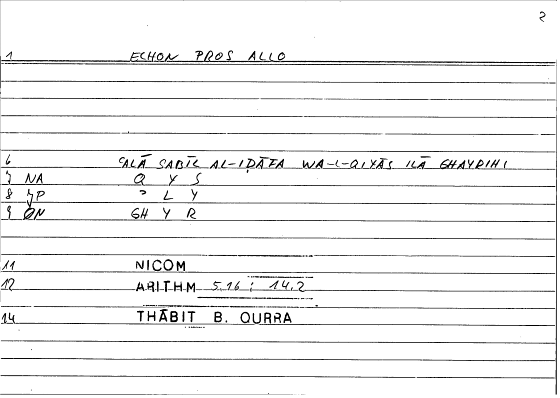 2
1 ECHON PROS ALLO
6 ʿALĀ SABĪL AL-IḌĀFA WA-L-QIYĀS ILĀ GHAYRIHI
7 NA Q Y S
8 JP ʾ L Y
9 ØN GH Y R
11 NICOM
12 ARITHM 5.16 ; 14.2
14 THĀBIT B. QURRA